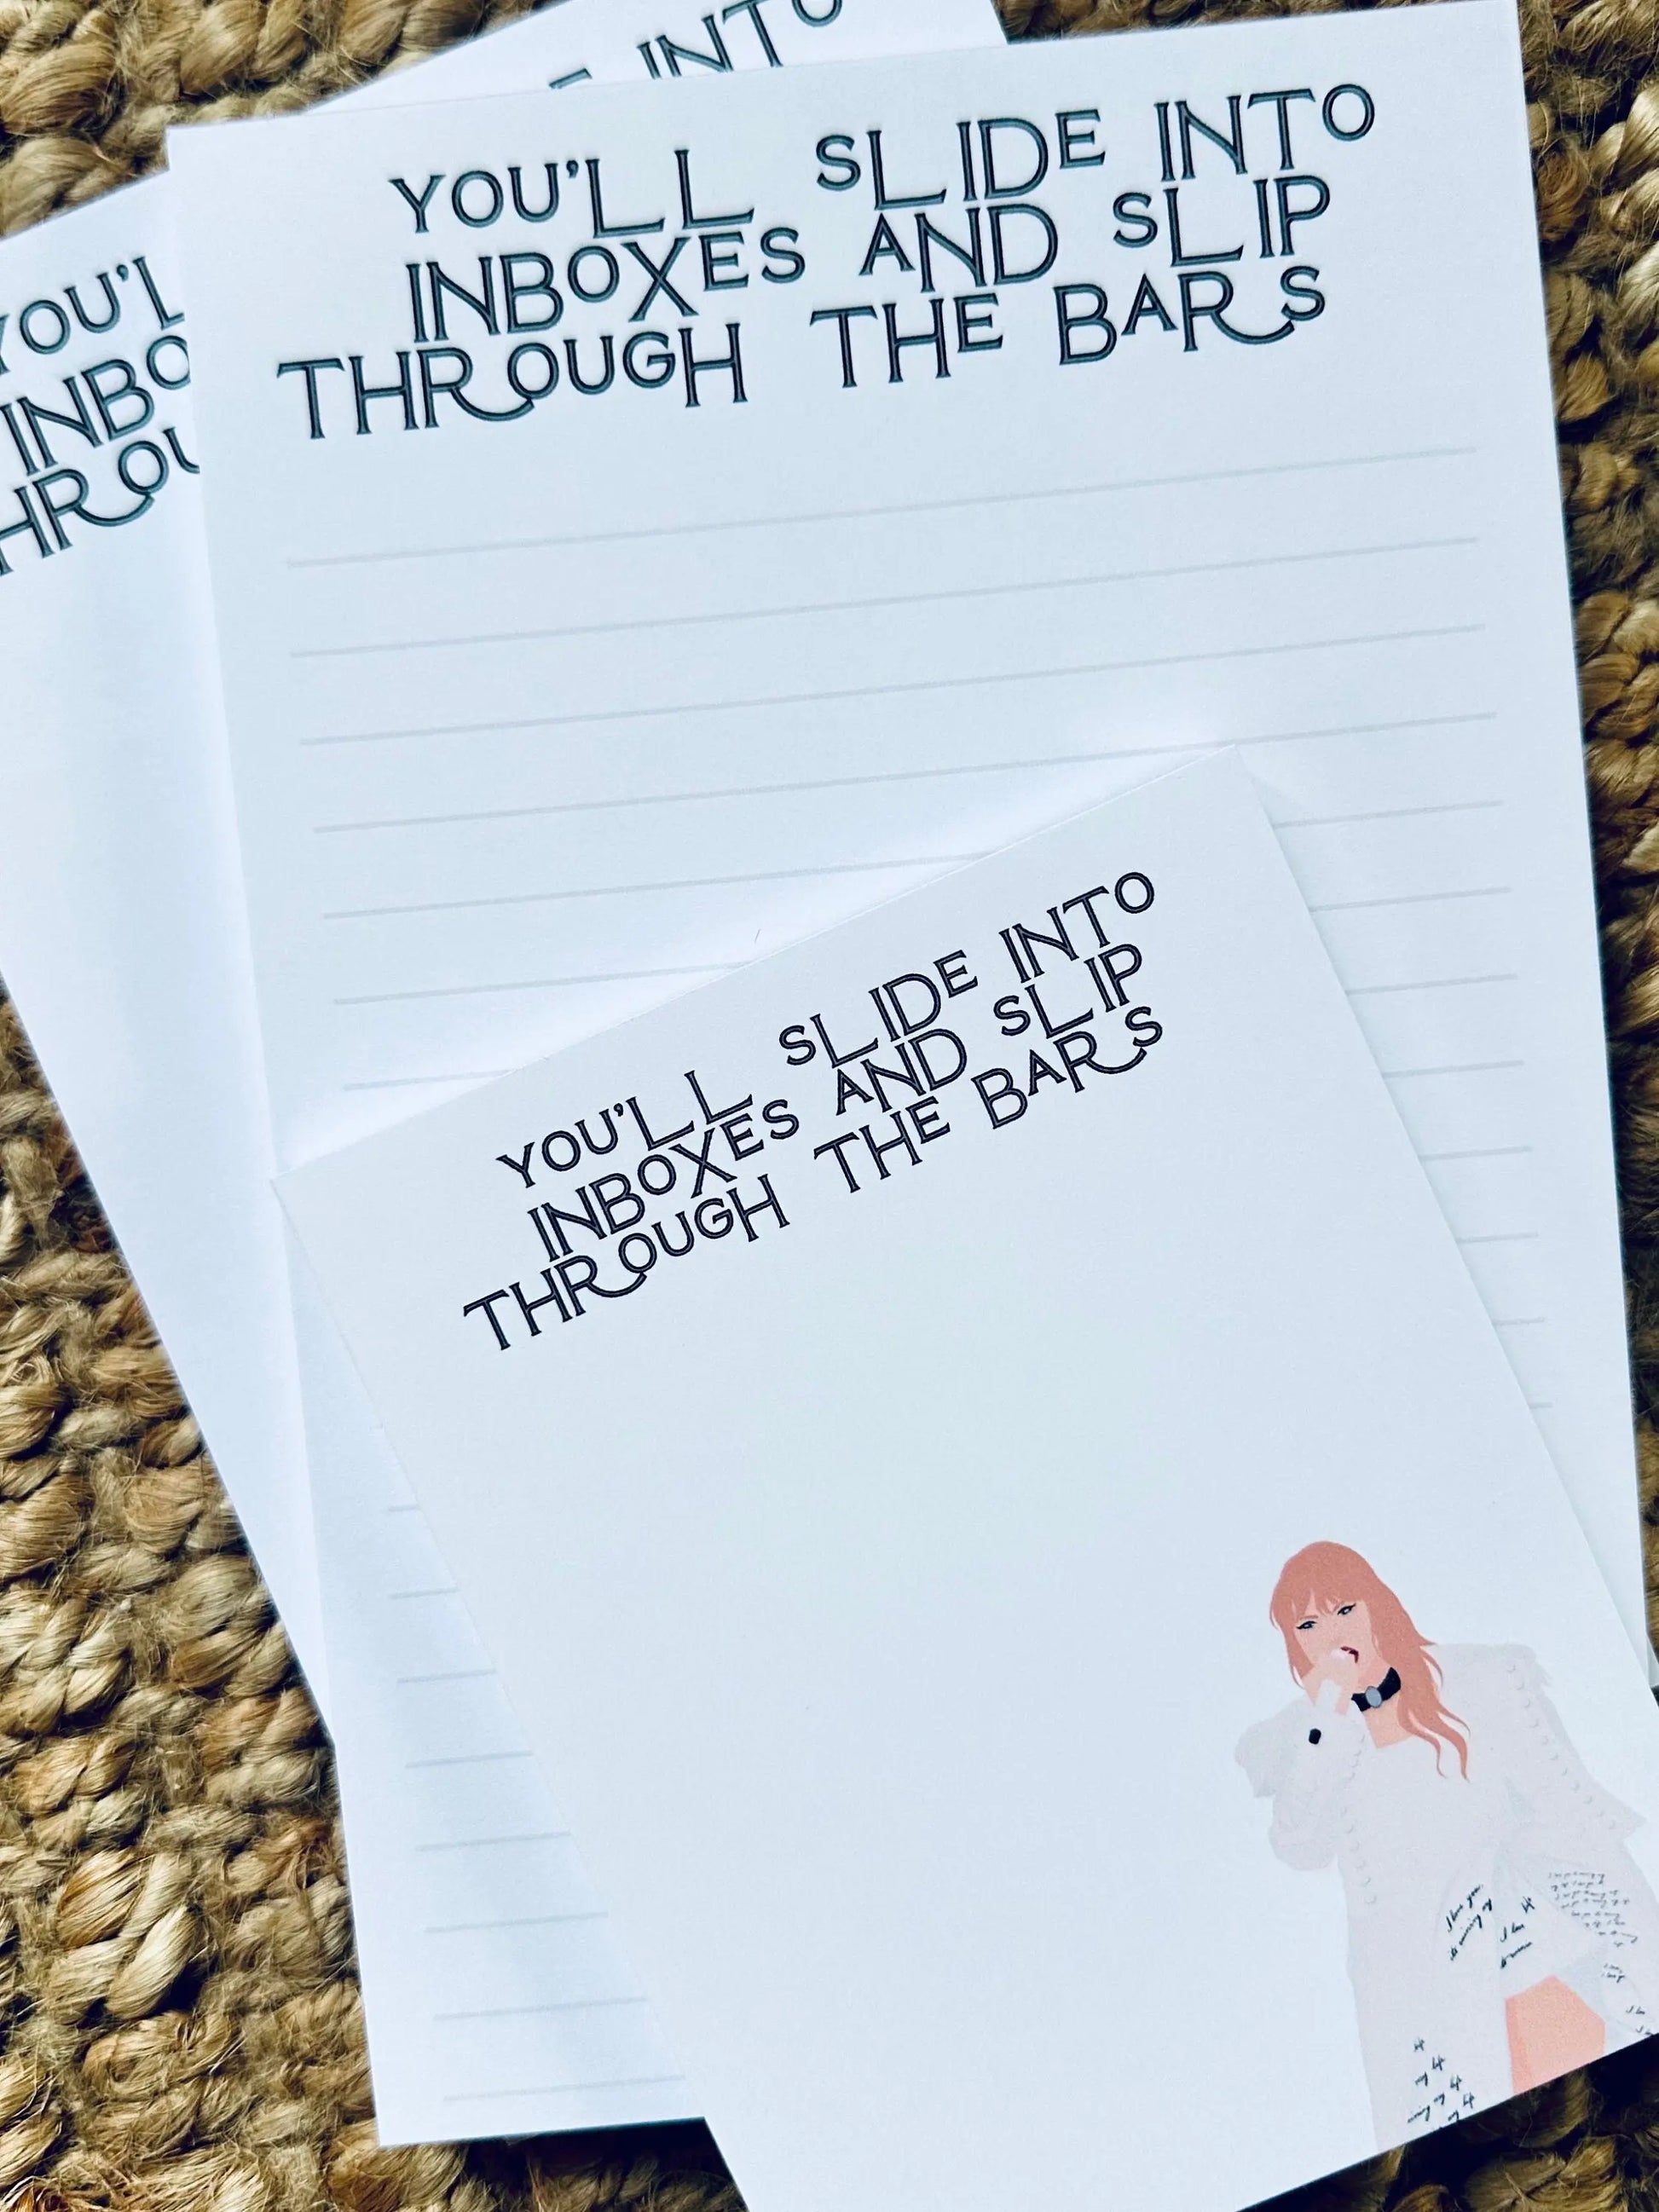 INTO
YOU'LL SLIDE INTO
INBOXES AND SLIP
THROUGH THE BARS
YOU'L
INBO
HROU
YOU'LL SLIDE INTO
INBOXES AND SLIP
THROUGH THE BARS
I love you